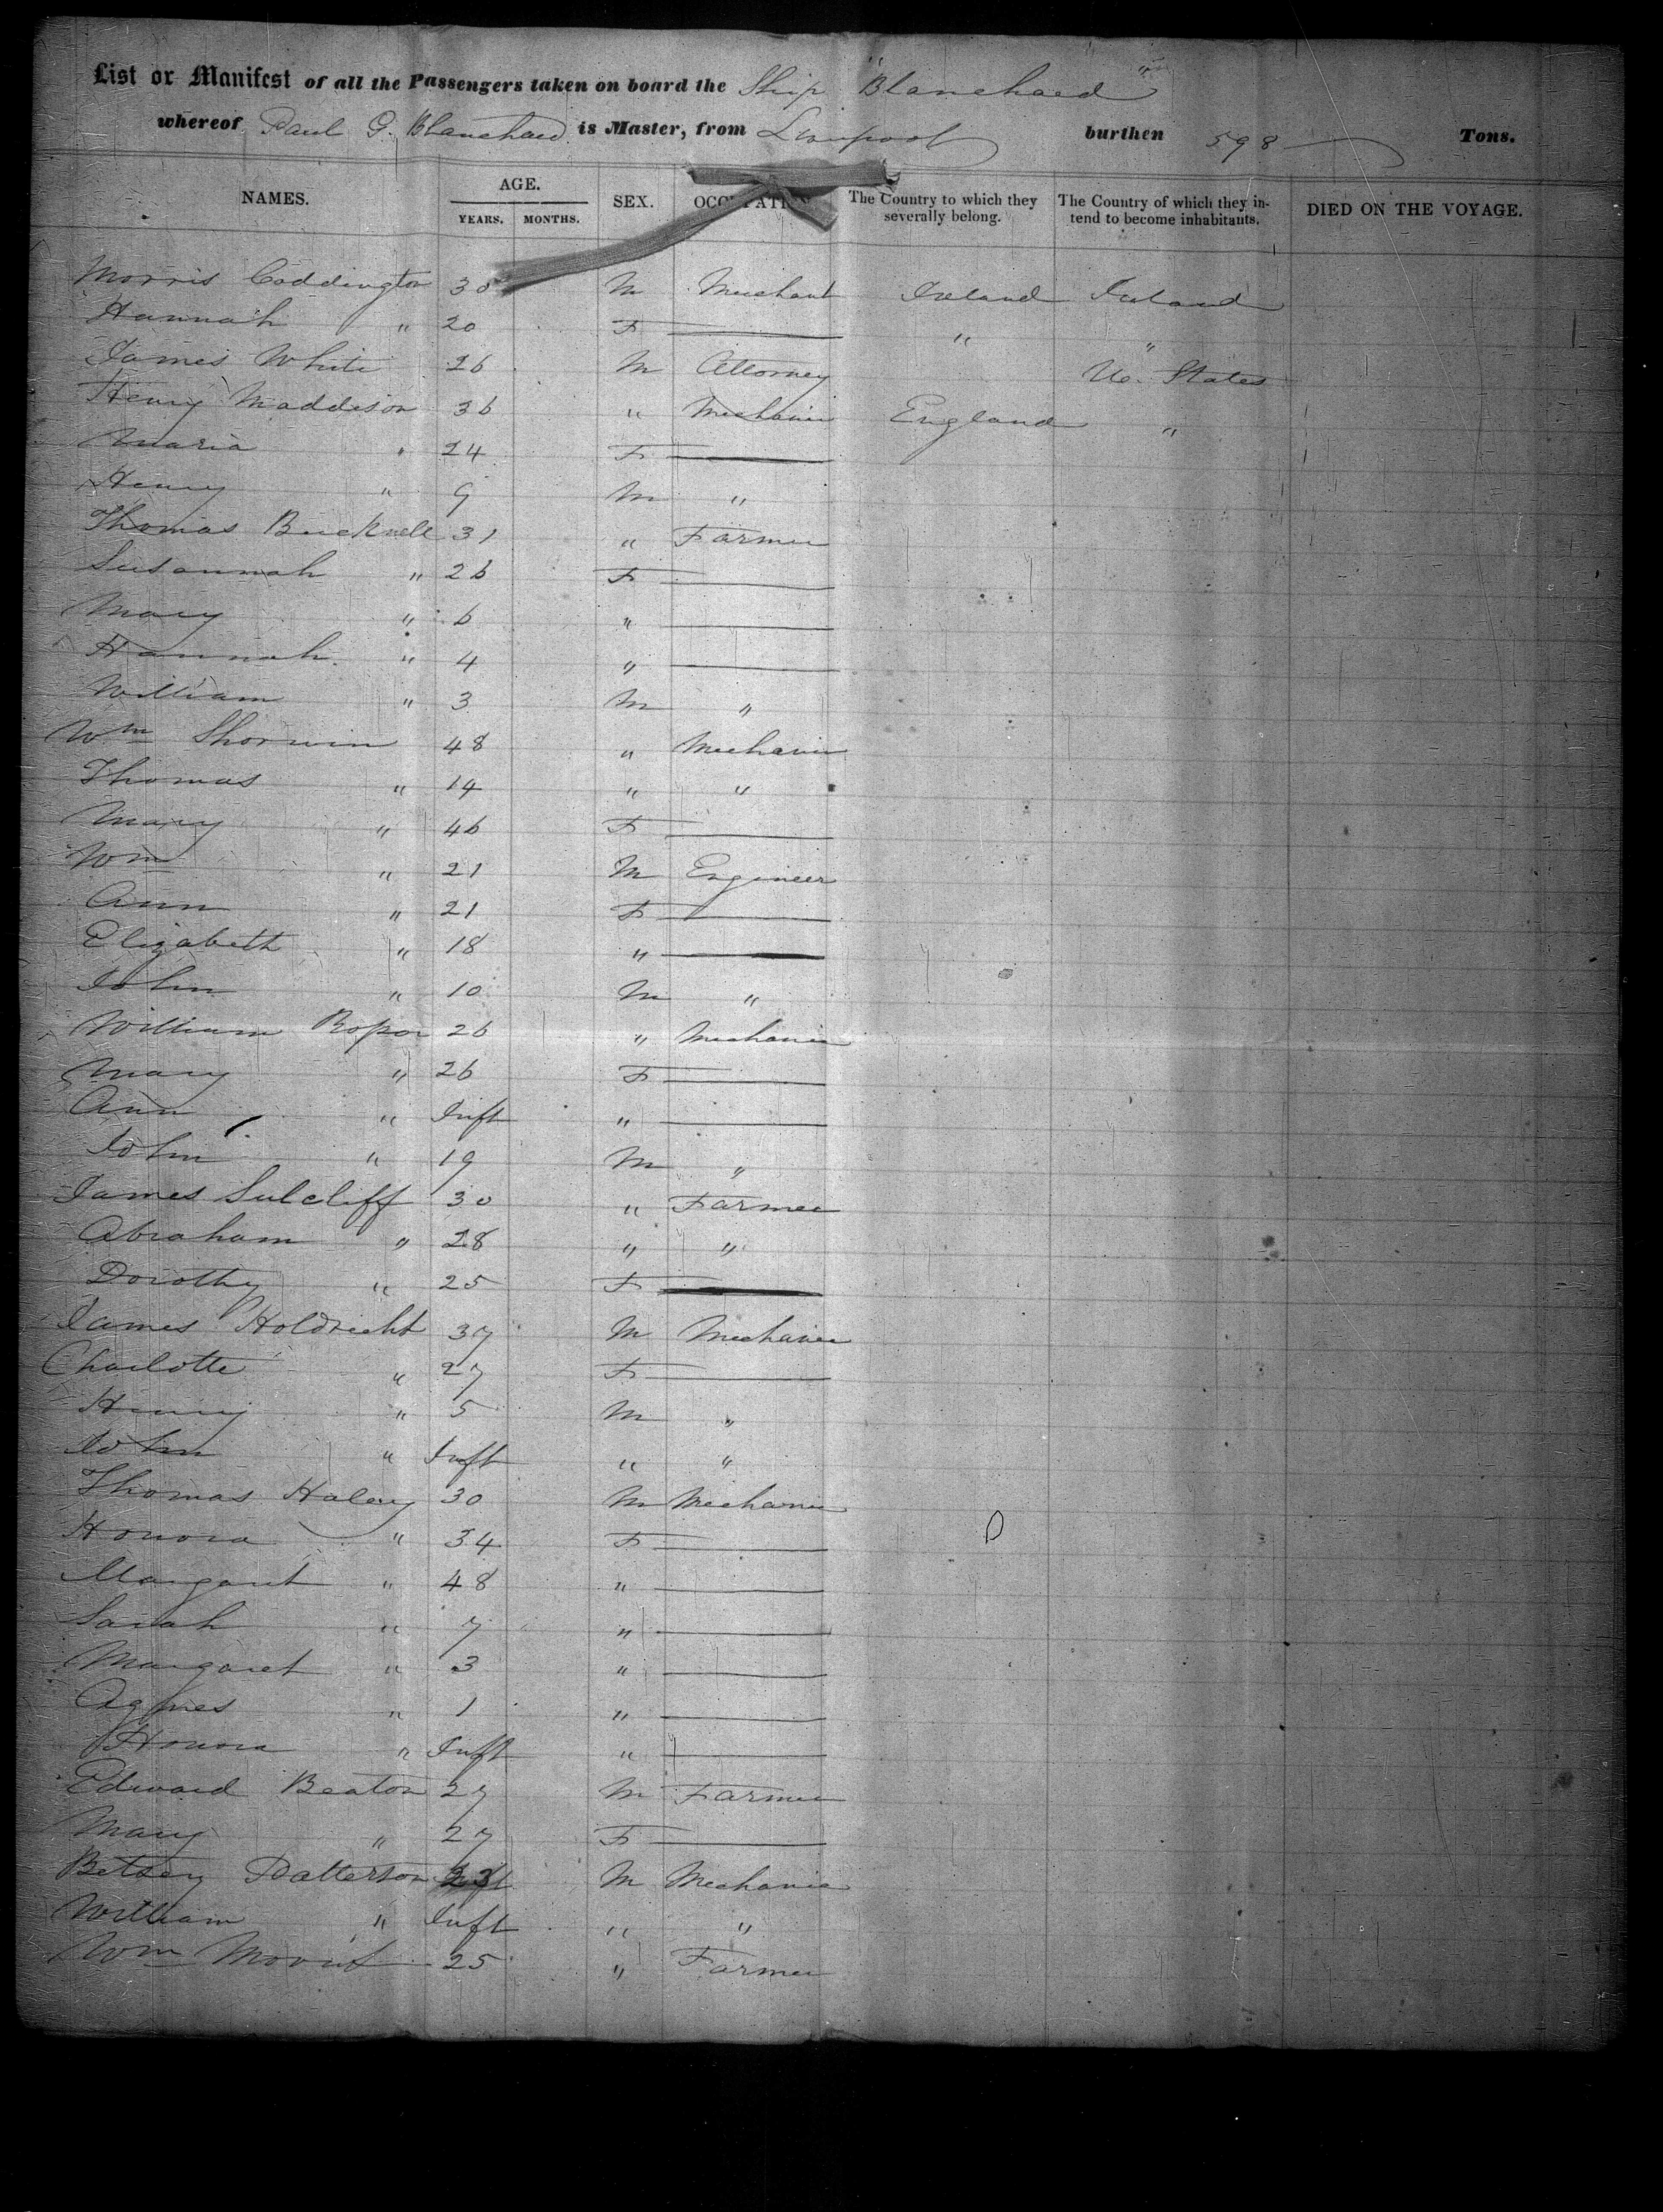 List or Manifest of all the Passengers taken on board the Ship "Blanchard"
whereof Paul G. Blanchard is Master, from Liverpool burthen 598 Tons.
NAMES. AGE. YEARS. MONTHS. SEX. OCCUPATION The Country to which they severally belong. The Country of which they intend to become inhabitants. DIED ON THE VOYAGE.
Morris Coddington 30 M Merchant Ireland Ireland
Hannah " 20 F — " "
James White 26 M Attorney U. States
Henry Maddison 36 " Mechanic England "
Maria " 24 F —
Henry " 9 M "
Thomas Bucknell 31 " Farmer
Susannah " 26 F —
Mary " 6 " —
Hannah " 4 " —
William " 3 M "
Wm Shorwin 48 " Mechanic
Thomas " 14 " "
Mary " 46 F —
Wm " 21 M Engineer
Ann " 21 F —
Elizabeth " 18 " —
John " 10 M "
William Roper 26 " Mechanic
Mary " 26 F —
Ann " Inft " —
John " 19 M "
James Sutcliff 30 " Farmer
Abraham " 28 " "
Dorothy " 25 F —
James Holdricht 37 M Mechanic
Charlotte " 27 F —
Henry " 5 M "
John " Inft " "
Thomas Haley 30 M Mechanic
Honora " 34 F —
Margaret " 48 " —
Sarah " 7 " —
Margaret " 3 " —
Agnes " 1 " —
Honora " Inft " —
Edward Beaton 27 M Farmer
Mary " 27 F —
Betsey Patterson 23 M Mechanic
William " Inft " "
Wm 25 " Farmer